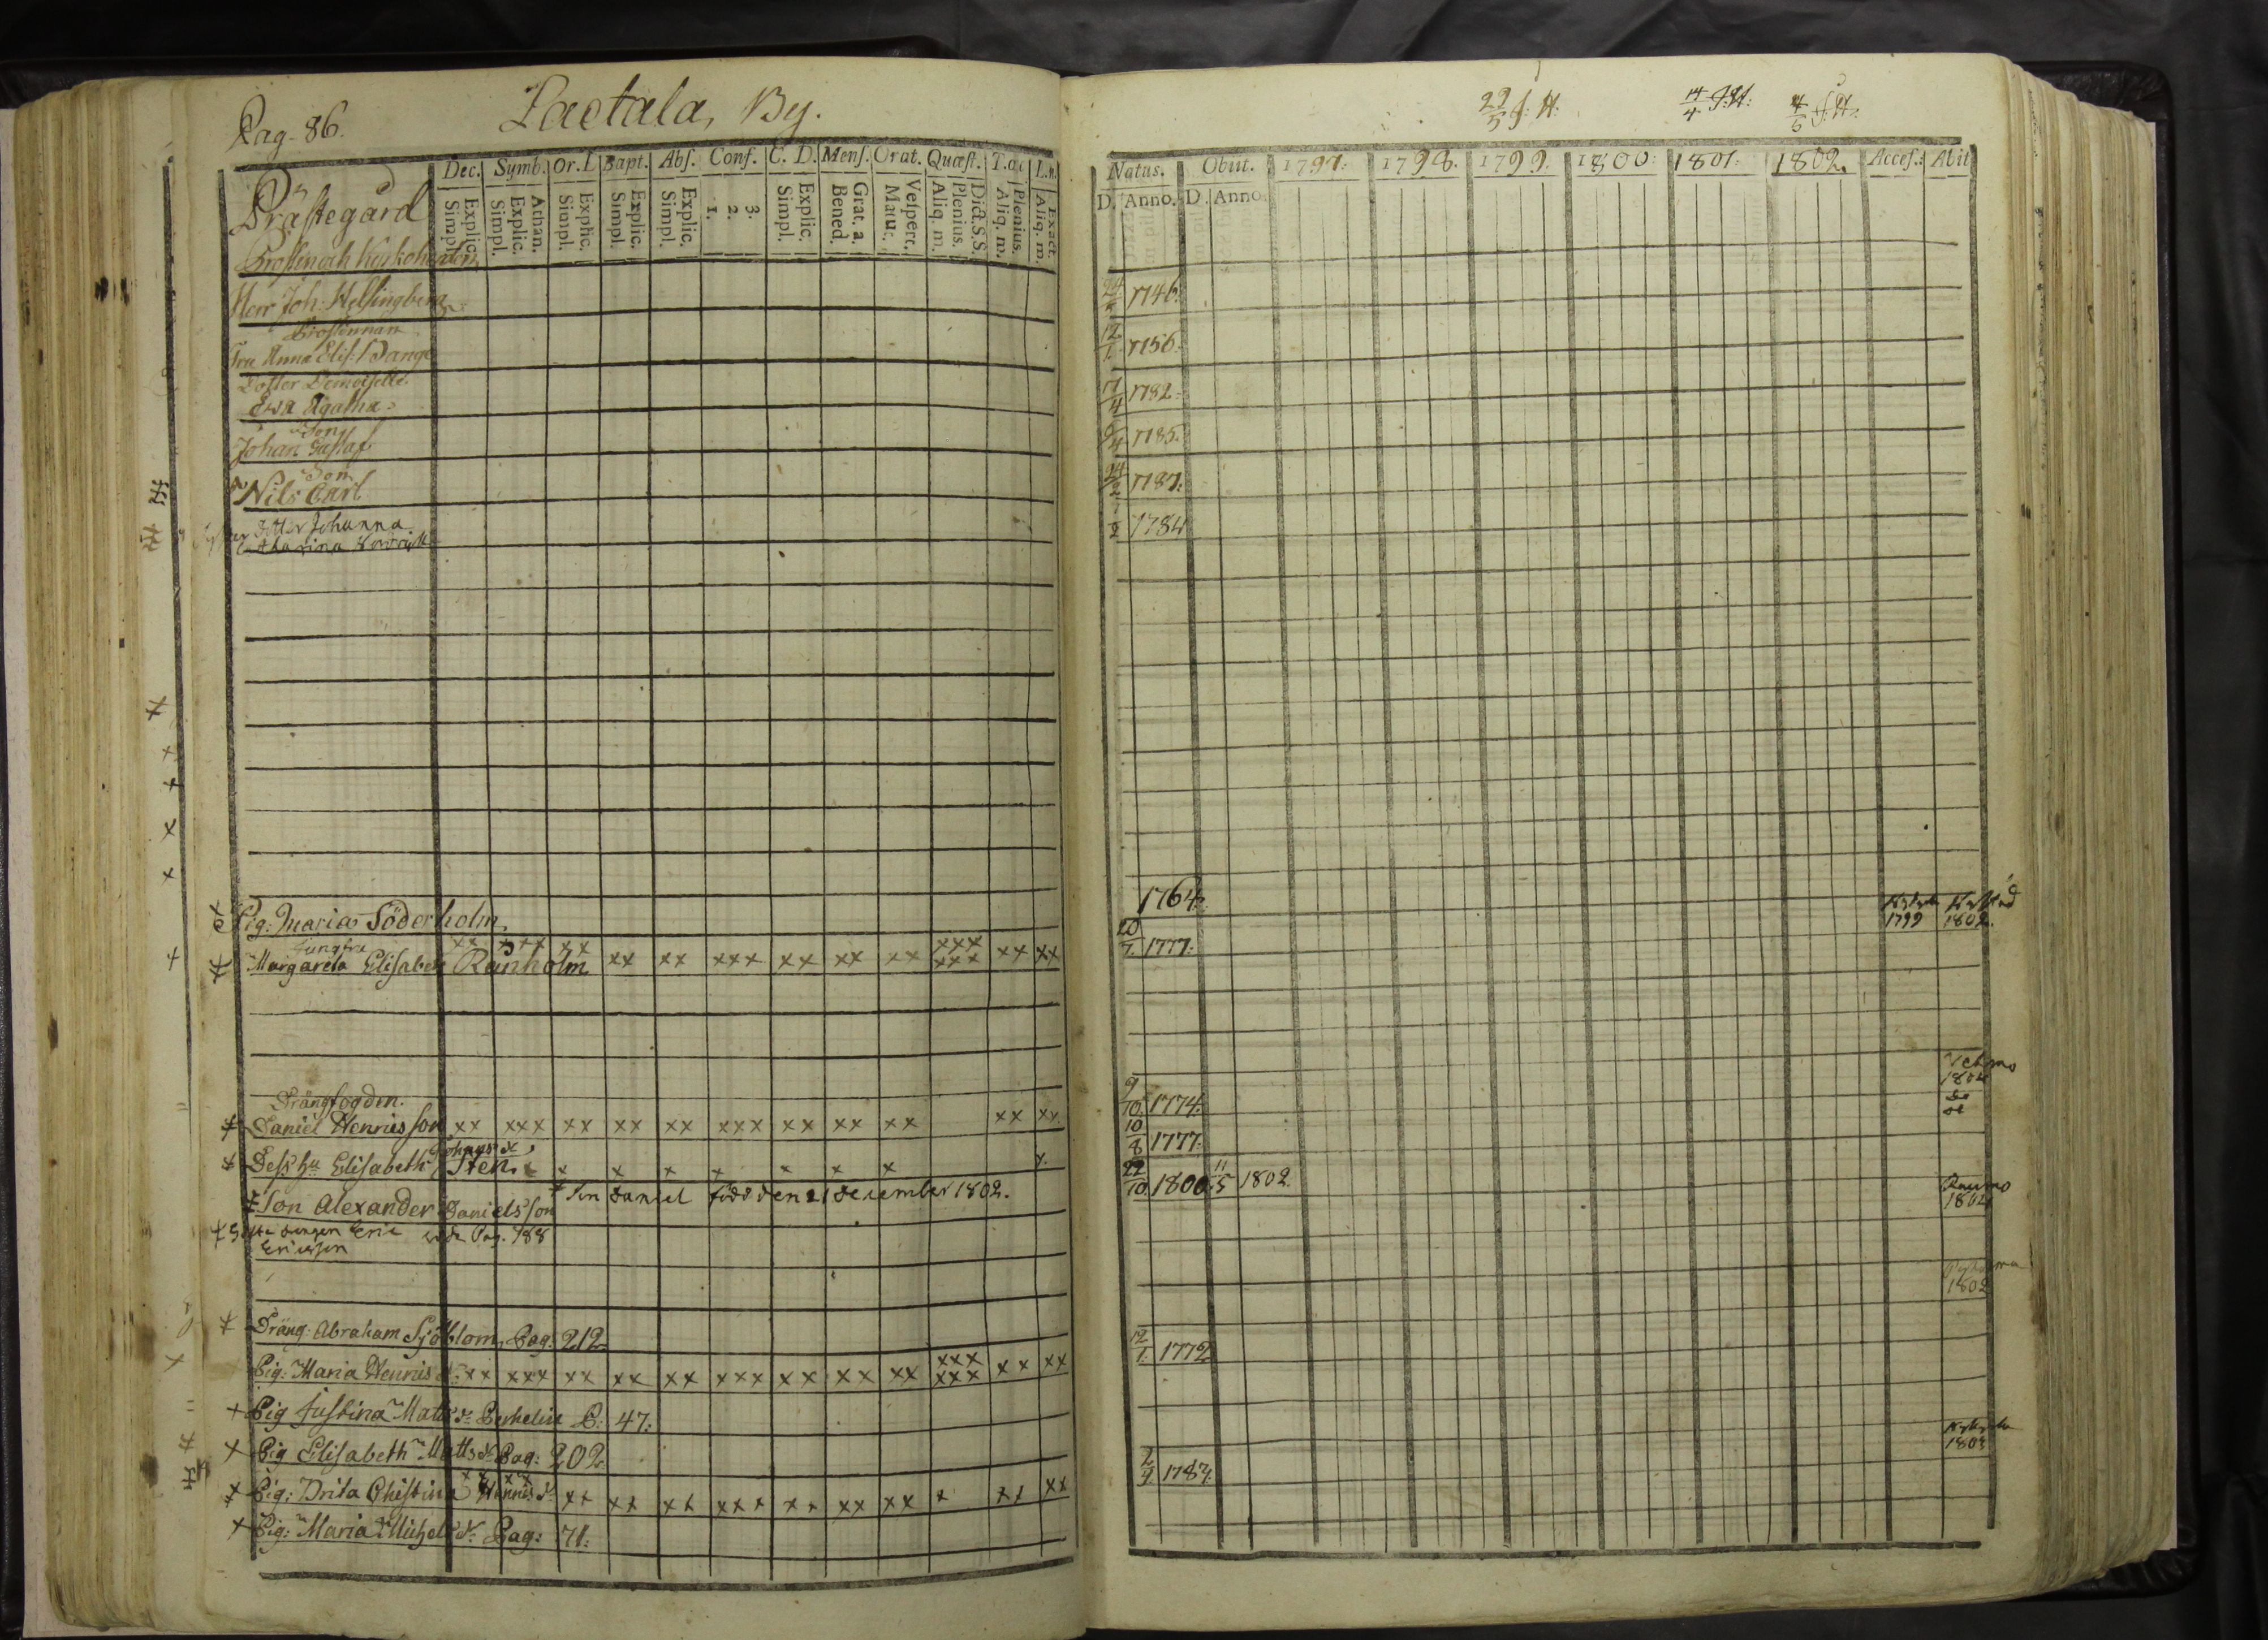 Pag. 86. Laetala, By.
Dec. Symb. Or. D. Bapt. Abs. Conf. C. D. Mens. Orat. Quæst. T. œc
Explic. Simpl. Athan. Explic. Simpl. Explic. Simpl. Explic. Simpl. Explic. Simpl. 3. 2. 1. Explic. Simpl. Grat. a. Bened. Vespert. Matut. Dict. S. S. Plenius. Aliq. m. Plenius. Aliq. m. Exact. Aliq. m.
Prästegård
Prosten och Kyrkoherden
Herr Joh: Helsingberg
Prostinnan
Fru Anna Elis: Bange
Dotter Demoiselle
Eva Agatha
Son
Johan Gustaf
Son
Nils Carl
Johanna
Catharina
Pig: Maria Söderholm,
Jungfru
Margareta Elisabeth Renholm xx xx xxx xx xx xx xxx xxx xx xx
Drängfogden.
Daniel Henrisson xx xxx xx xx xx xxx xx xx xx xx xx
Johans dr
Dess hu Elisabeth Sten. x x x x x x x x
Son Daniel född den 21 December 1802.
Son Alexander Danielsson
drengen Eric vide Pag. 188
Ericsson
Dräng: Abraham Sjöblom, Pag: 212
Pig: Maria Henrisdr xx xxx xx xx xx xxx xx xx xx xxx xxx xx xx
Pig Justina Mattsdr P: 47:
Pig Elisabeth Mattsdr Pag: 202
Pig: Brita Christina Henrisdr xx xx xx xxx xx xx xx x xx xx
Pig: Maria Michelsdr Pag: 71:
22/5 J. H. 14/4 J. H: 4/5 J. H.
Natus. Obiit. 1797. 1798. 1799. 1800. 1801. 1802. Acces. Abit
D. Anno. D. Anno.
1746.
12/1 1756.
17/4 1782.
1785.
1787.
1784
1764. 1799 1802.
20/7 1777.
1804
9/10. 1774.
10/8 1777.
22/10 1800. 11/5 1802. Raumo
1802
1802
12/1. 1772
1803
2/9. 1783.